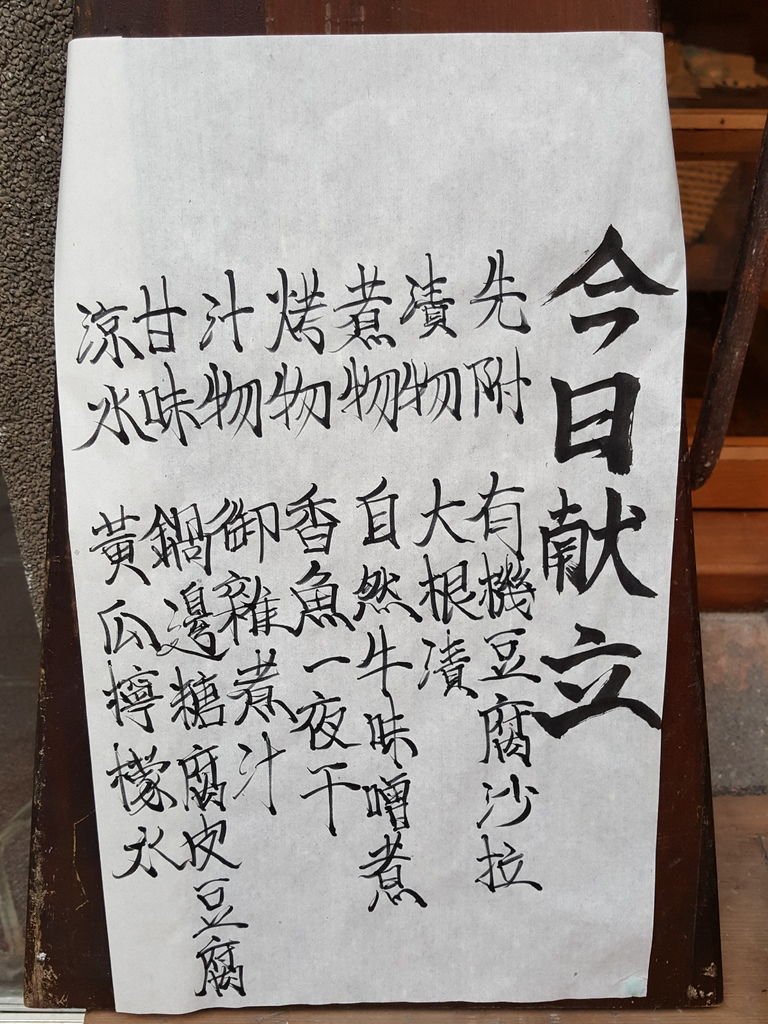 今日献立
先附 有機豆腐沙拉
漬物 大根漬
煮物 自然牛味噌煮
烤物 香魚一夜干
汁物 御雜煮汁
甘味 鍋邊糖腐皮豆腐
涼水 黃瓜檸檬水